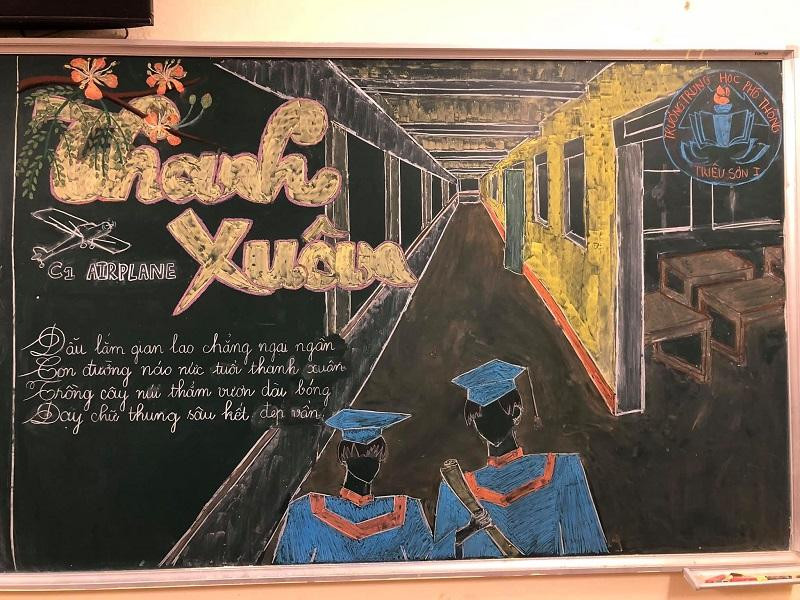 Thanh
Xuân
C1 AIRPLANE
Dẫu lắm gian lao chẳng ngại ngần
Con đường náo nức tuổi thanh xuân
Trồng cây núi thẳm vươn dài bóng
Dạy chữ thung sâu kết đẹp vần
TRƯỜNG TRUNG HỌC PHỔ THÔNG
TRIỆU SƠN I